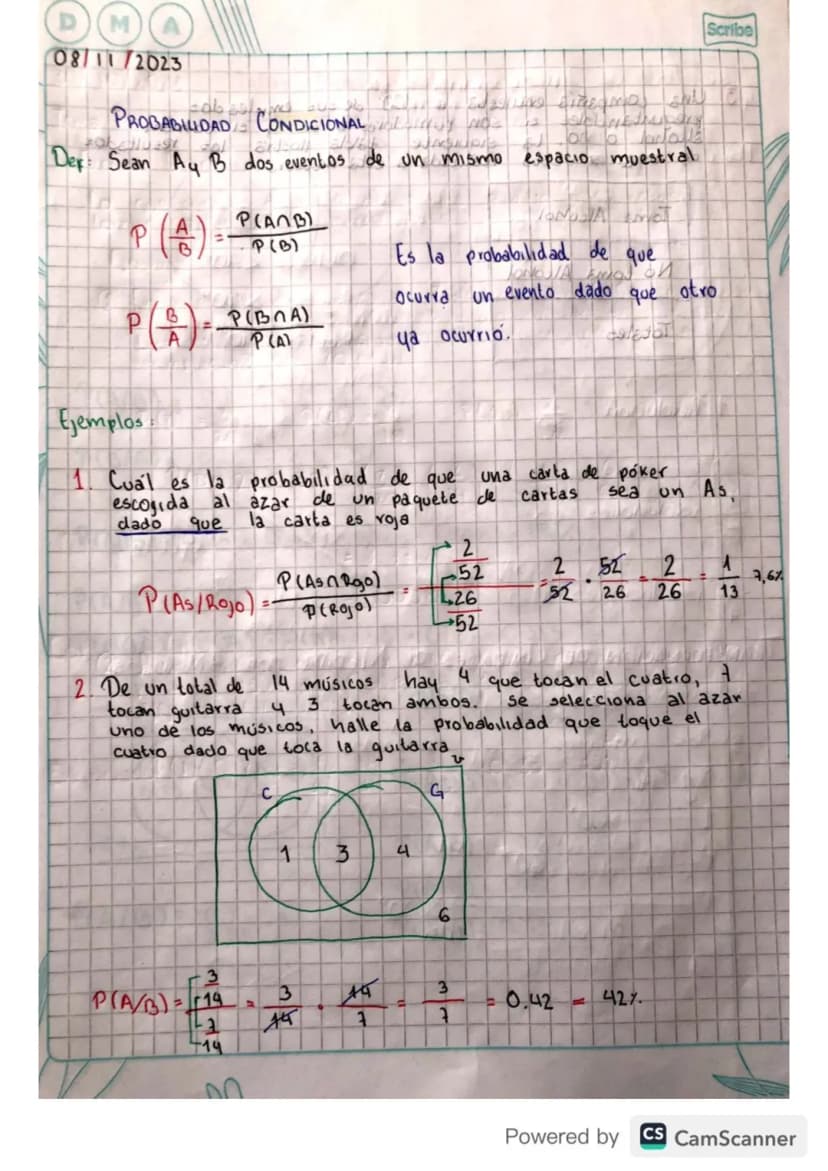 D M A
Scribe
08/11/2023
PROBABILIDAD CONDICIONAL
Def: Sean A y B dos eventos de un mismo espacio muestral
P(A/B) = P(A∩B)/P(B)
Es la probabilidad de que
ocurra un evento dado que otro
ya ocurrió.
P(B/A) = P(B∩A)/P(A)
Ejemplos:
1. Cuál es la probabilidad de que una carta de póker
escogida al azar de un paquete de cartas sea un As,
dado que la carta es roja
P(As/Rojo) = P(As∩Rojo)/P(Rojo) = (2/52)/(26/52) = 2/52 · 52/26 = 2/26 = 1/13 7,6%
2. De un total de 14 músicos hay 4 que tocan el cuatro, 7
tocan guitarra y 3 tocan ambos. se selecciona al azar
uno de los músicos, halle la probabilidad que toque el
cuatro dado que toca la guitarra
U
C G
1 3 4
6
P(A/B) = (3/14)/(7/14) = 3/14 · 14/7 = 3/7 = 0,42 = 42%.
Powered by CS CamScanner